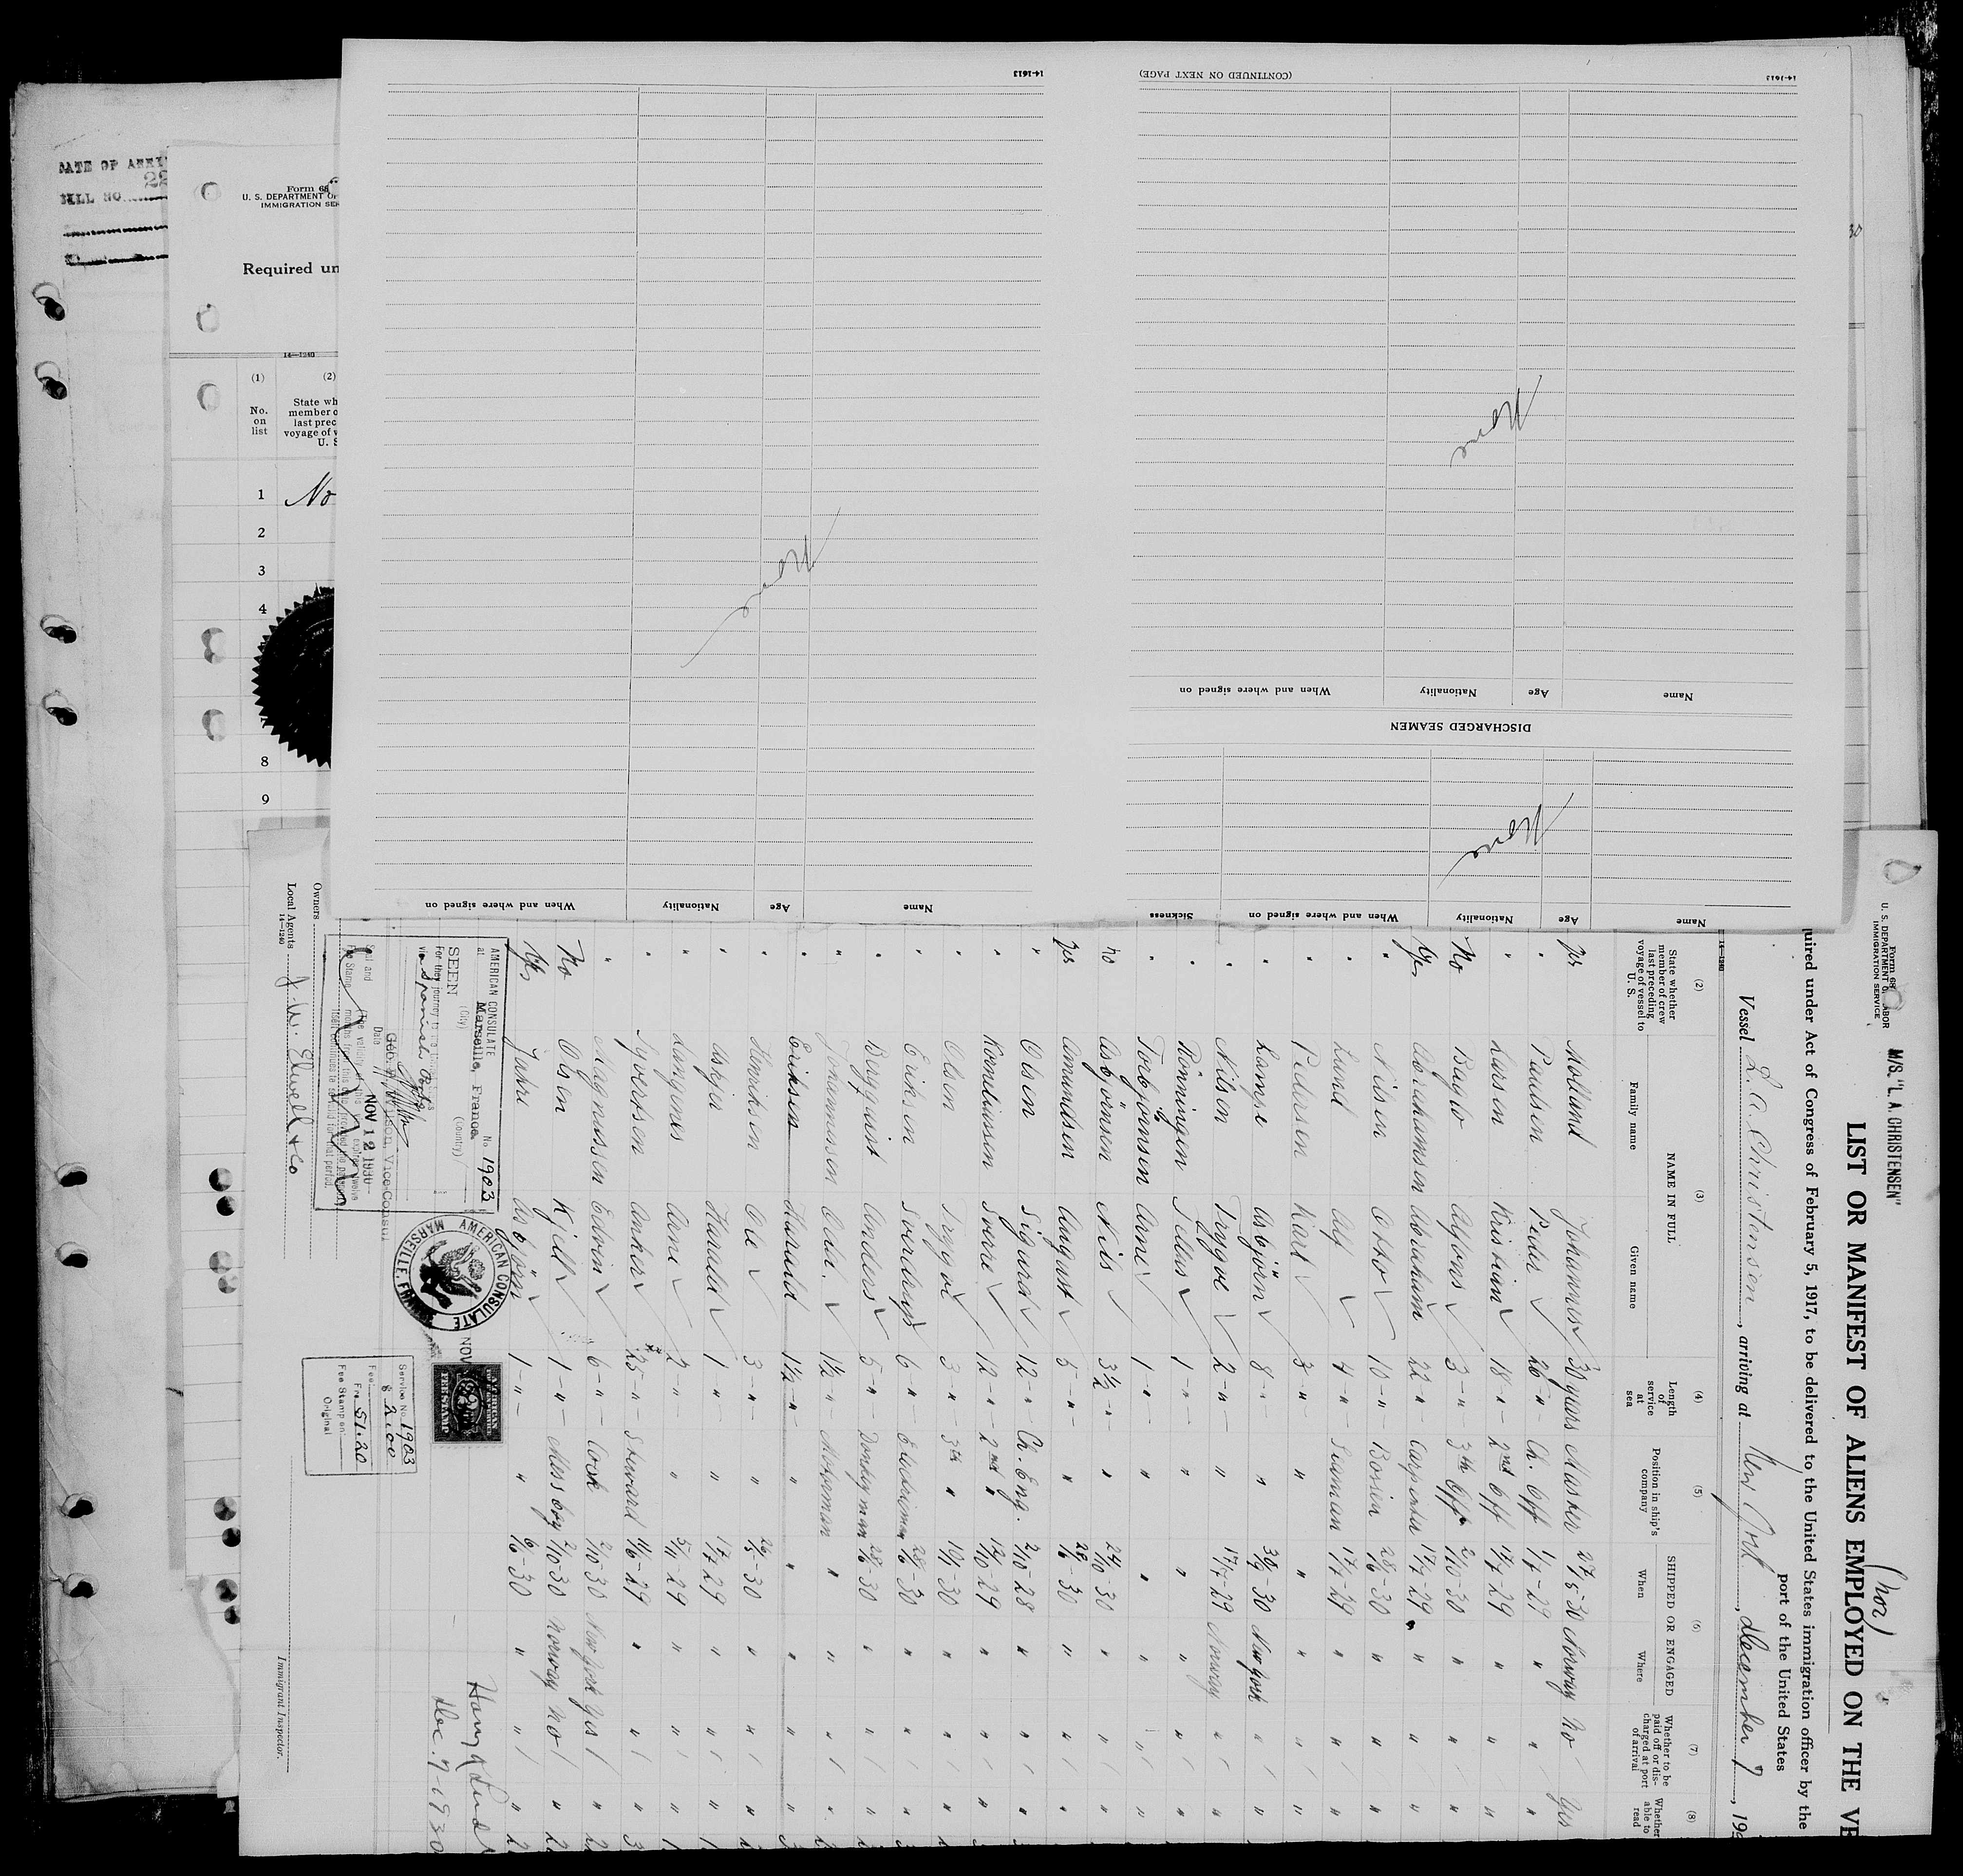 DATE OF ARRI
BILL NO. 22
Form 68
U. S. DEPARTMENT OF
IMMIGRATION SER
Required un
14—1240
(1)
(2)
No.
on
list
State wh
member o
last prec
voyage of v
U. S
1 No
2
3
4
8
9
14-1613
(CONTINUED ON NEXT PAGE)
14-1613
None
None
Name Age Nationality When and where signed on
DISCHARGED SEAMEN
None
Name Age Nationality When and where signed on Sickness
Name Age Nationality When and where signed on
Form 68
U. S. DEPARTMENT O LABOR
IMMIGRATION SERVICE
M/S. "L. A. CHRISTENSEN"
(Nor)
LIST OR MANIFEST OF ALIENS EMPLOYED ON THE VE
quired under Act of Congress of February 5, 1917, to be delivered to the United States immigration officer by the
port of the United States
Vessel L. A. Christensen, arriving at New York, December 7, 19
14—1240
(2) (3) (4) (5) (6) (7) (8)
State whether member of crew last preceding voyage of vessel to U. S.
NAME IN FULL
Family name
Given name
Length of service at sea
Position in ship's company
SHIPPED OR ENGAGED
When
Where
Whether to be paid off or discharged at port of arrival
Whether able to read
Yes Molland Johannes 30 years Master 27/5-30 Norway No Yes
" Paulsen Peder 26 " Ch. Off 1/7-29 " " "
" Larsen Kristian 18 " 2nd Off 17/7-29 " " "
No Baglo Alfons 3 - " 3th Off 2/10-30 " " "
Yes Abrahamsen Abraham 22 " Carpenter 17/7-29 " " "
" Nilsen Otto 10 - " Bosen 28/6-30 " " "
" Lund Alf 4 - " - Seaman 17/7-29 " " "
" Pedersen Karl 3 " " " " " "
" Lamse Asbjörn 8 - - " 30/9-30 New York " "
" Nilsen Trygve 2 - " - " 17/7-29 Norway " "
" Rönningen Tellas 1 - " - " " " " "
" Torbjörnsen Arne 1 - " - " " " " "
No Asbjörnsen Nils 3½ - " " 24/10-30 " " "
Yes Amundsen August 5 - " - " 28/6-30 " " "
" Olsen Sigurd 12 - " Ch. Eng. 2/10-28 " " "
" Korneliussen Sverre 12 - " 2nd " 12/10-29 " " "
" Olsen Trygve 3 - " 3th " 10/1-30 " " "
" Eriksen Sverdrup 6 " 28/6-30 " " "
" Bergquist Anders 5 - " - Donkeyman 28/6-30 " " "
" Johannessen Odd. 1½ " Motorman " " " "
" Eriksen Harald 1½ - " " " " " "
" Henriksen Ole 3 - " - " 26/5-30 " " "
" Asker Harald 1 " - " 17/7-29 " " "
" Langnes Arne 2 - " - " 5/11-29 " " "
" Syvertsen Anker 25 - " - Steward 14/6-29 " " "
" Magnussen Edvin 6 - " - Cook 2/10-30 New York Yes "
No Olsen Kjell 1 - " - Mess boy 2/10-30 Norway No "
Yes Jahre Asbjörn 1 - " - " 6/6-30 " " "
AMERICAN CONSULATE
at Marseille, France. No 1903
(City) (Country)
SEEN
For the journey to the
via Spanish Ports
Vice Consul
Date NOV 12 1930
Seal and
Fee Stamp
AMERICAN CONSULATE
MARSEILLE, FRANCE
NOV
Service No. 1903
Fee: $ 2.00
Frs 51.20
Fee Stamp on
Original
Harry Lund
Dec. 7-1930
Owners
Local Agents J. W. Elwell & Co
14—1240
Immigrant Inspector.